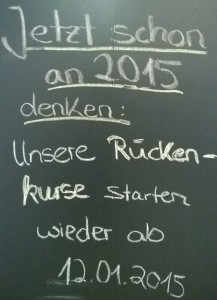 Jetzt schon
an 2015
denken:
Unsere Rücken-
kurse starten
wieder ab
12.01.2015